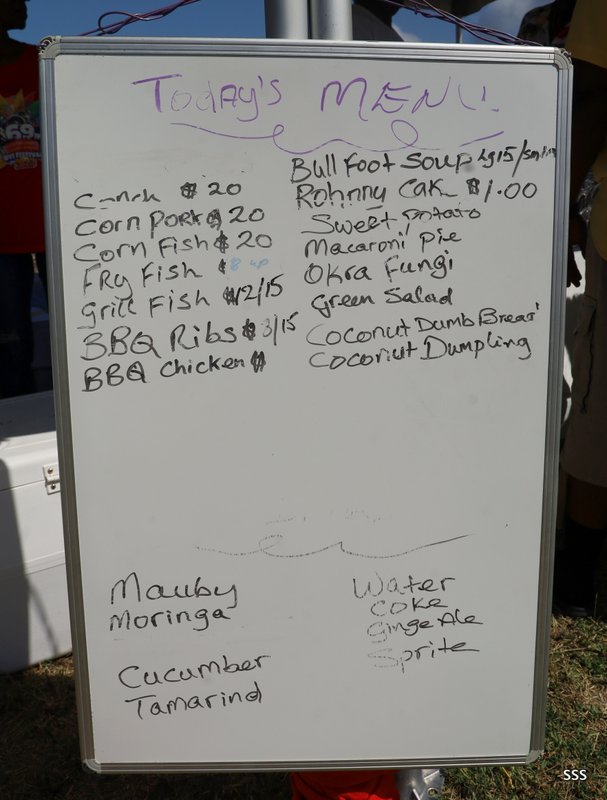 Today's MENU
Conch $20
Corn Pork $20
Corn Fish $20
FRy Fish $8 up
Grill Fish $12/15
BBQ Ribs $13/15
BBQ Chicken $
Bull Foot Soup Lg15/Sm
Rohnny Cak $1.00
Sweet Potato
Macaroni Pie
Okra Fungi
Green Salad
Coconut Dumb Bread
Coconut Dumpling
Mauby
Moringa
Cucumber
Tamarind
Water
Coke
Ginge Ale
Sprite
69
SSS